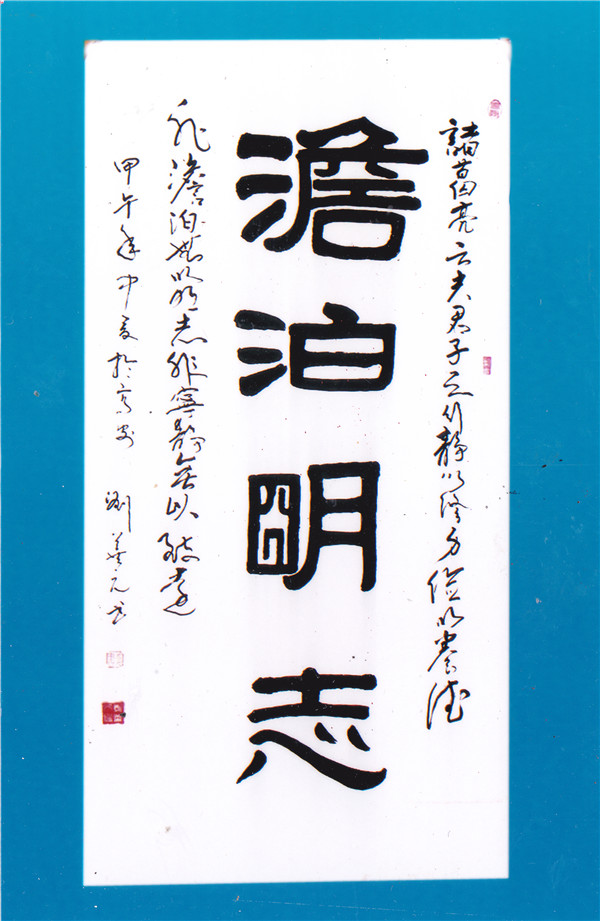 諸葛亮云夫君子之行靜以修身儉以養德
澹泊明志
非澹泊無以明志非寧靜無以致遠
甲午年中夏於高安 劉元书